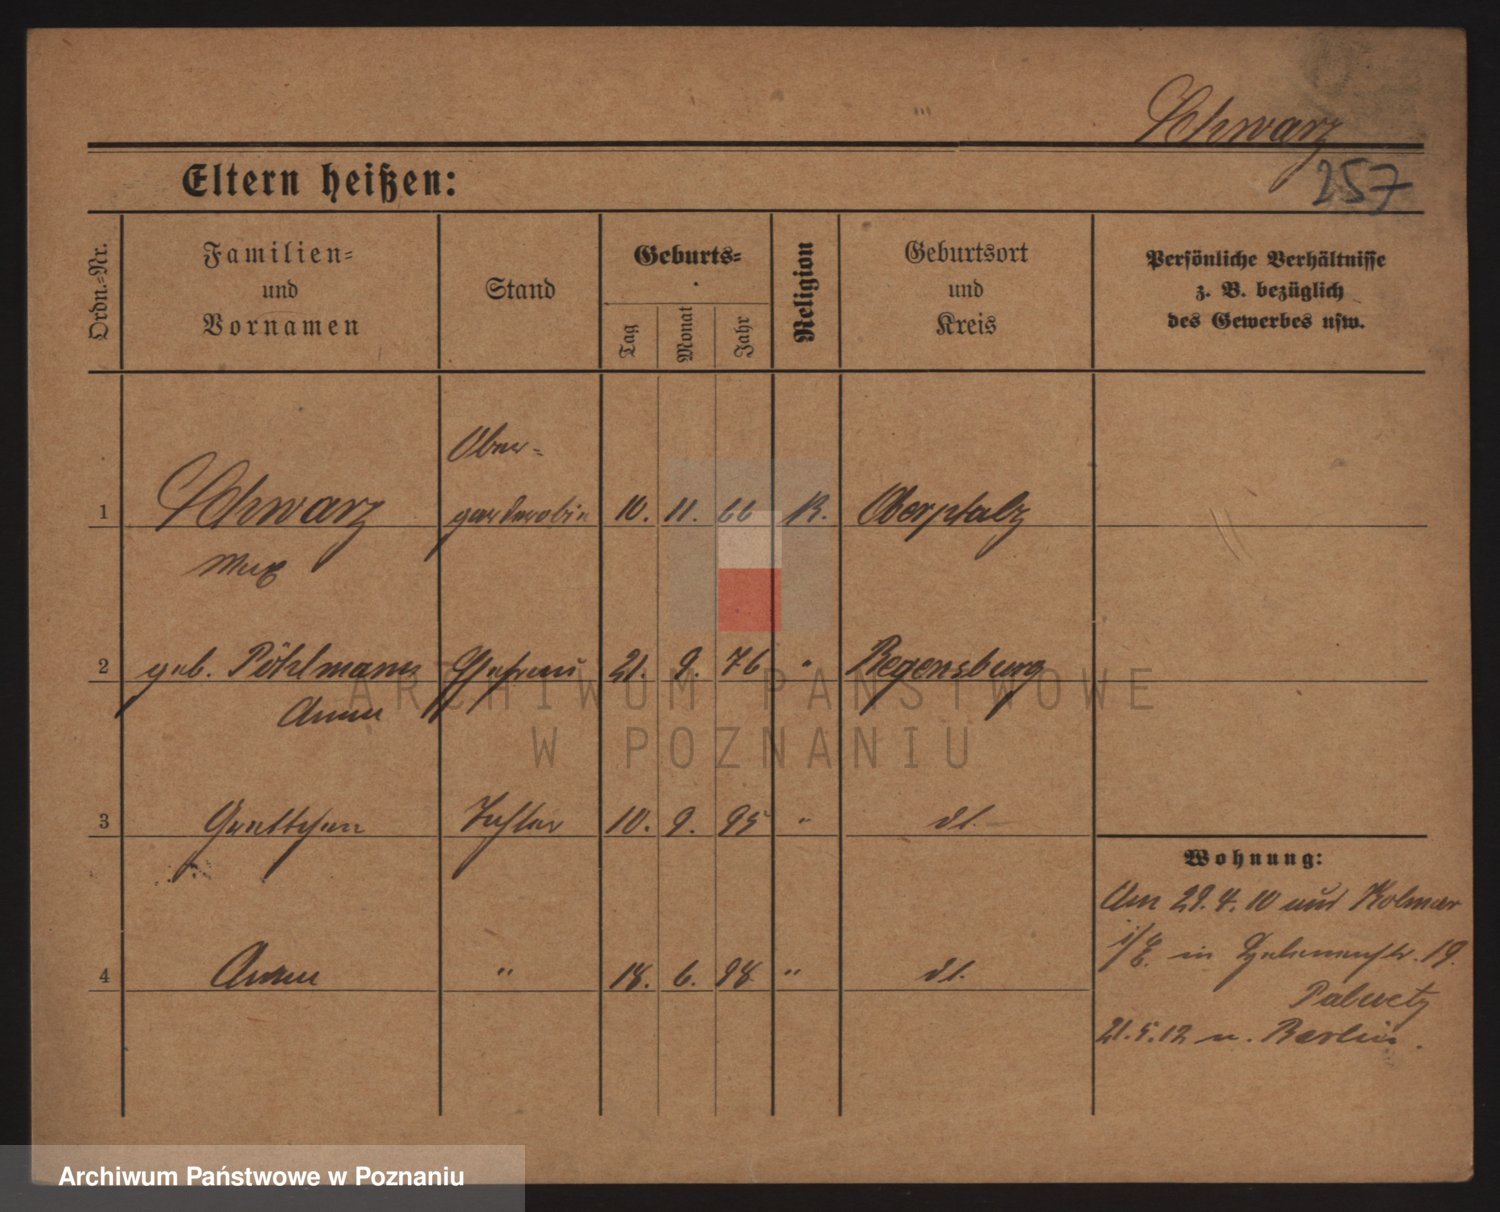 Schwarz
257
Eltern heißen:
Ordn.-Nr.
Familien-
und
Vornamen
Stand
Geburts-
Tag
Monat
Jahr
Religion
Geburtsort
und
Kreis
Persönliche Verhältnisse
z. B. bezüglich
des Gewerbes usw.
Ober-
1 Schwarz garderobie 10. 11. 66 K. Oberpfalz
Max
2 geb. Pöhlmann Ehefrau 21. 9. 76 " Regensburg
Anna
3 Grettchen Tochter 10. 9. 95 " dt.
Wohnung:
Am 29. 4. 10 aus Kolmar
i/E. in 19.
4 Anna " 18. 6. 98 " dt.
21. 5. 12 n. Berlin.
ARCHIWUM PAŃSTWOWE
W POZNANIU
Archiwum Państwowe w Poznaniu